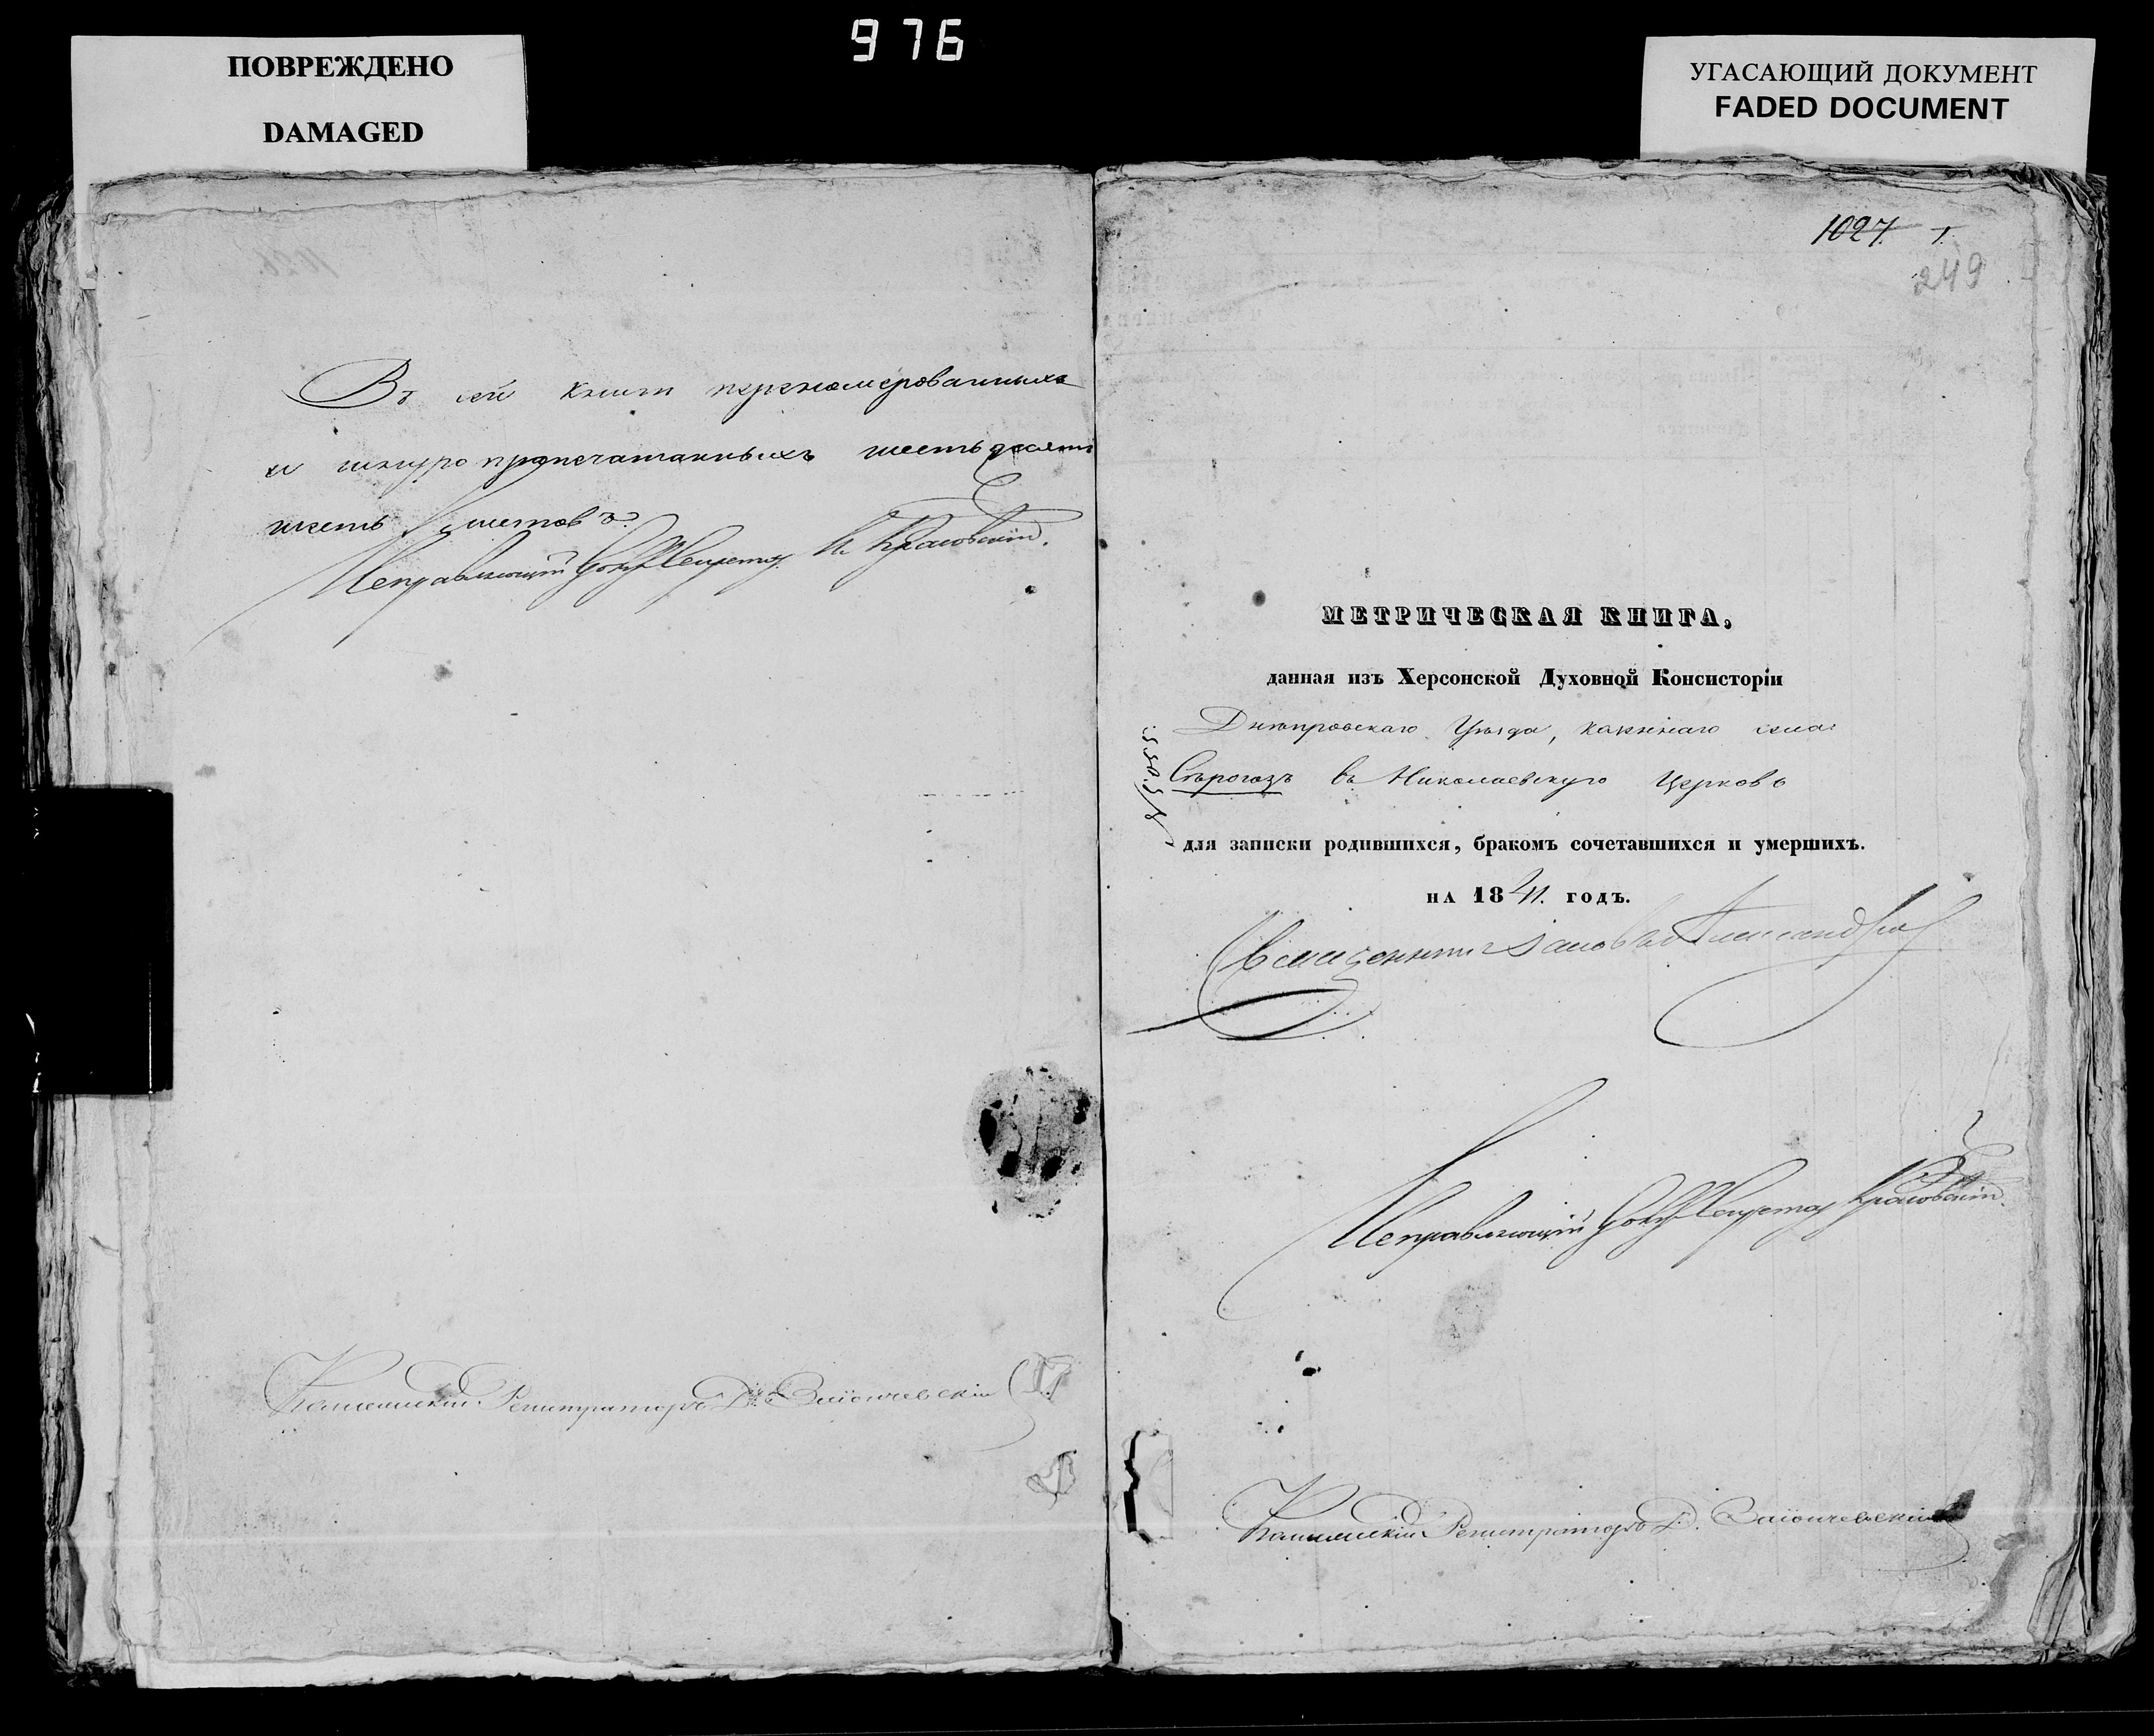 976
ПОВРЕЖДЕНО
DAMAGED
УГАСАЮЩИЙ ДОКУМЕНТ
FADED DOCUMENT
Въ сей книги перенумерованныхъ
и шнуропропечатанныхъ шестьдесятъ
шесть листовъ.
Исправляющій долж. Секретаря К. Красовскій.
Канцелярскій Регистраторъ
1027. 1.
249
МЕТРИЧЕСКАЯ КНИГА,
данная изъ Херсонской Духовной Консисторіи
Днѣпровскаго Уѣзда, казеннаго села
Сѣрогозъ въ Николаевскую Церковь
для записки родившихся, бракомъ сочетавшихся и умершихъ.
НА 1841. ГОДЪ.
Священникъ
Исправляющій долж. Секретаря Красовскій
Канцелярскій Регистраторъ Д.